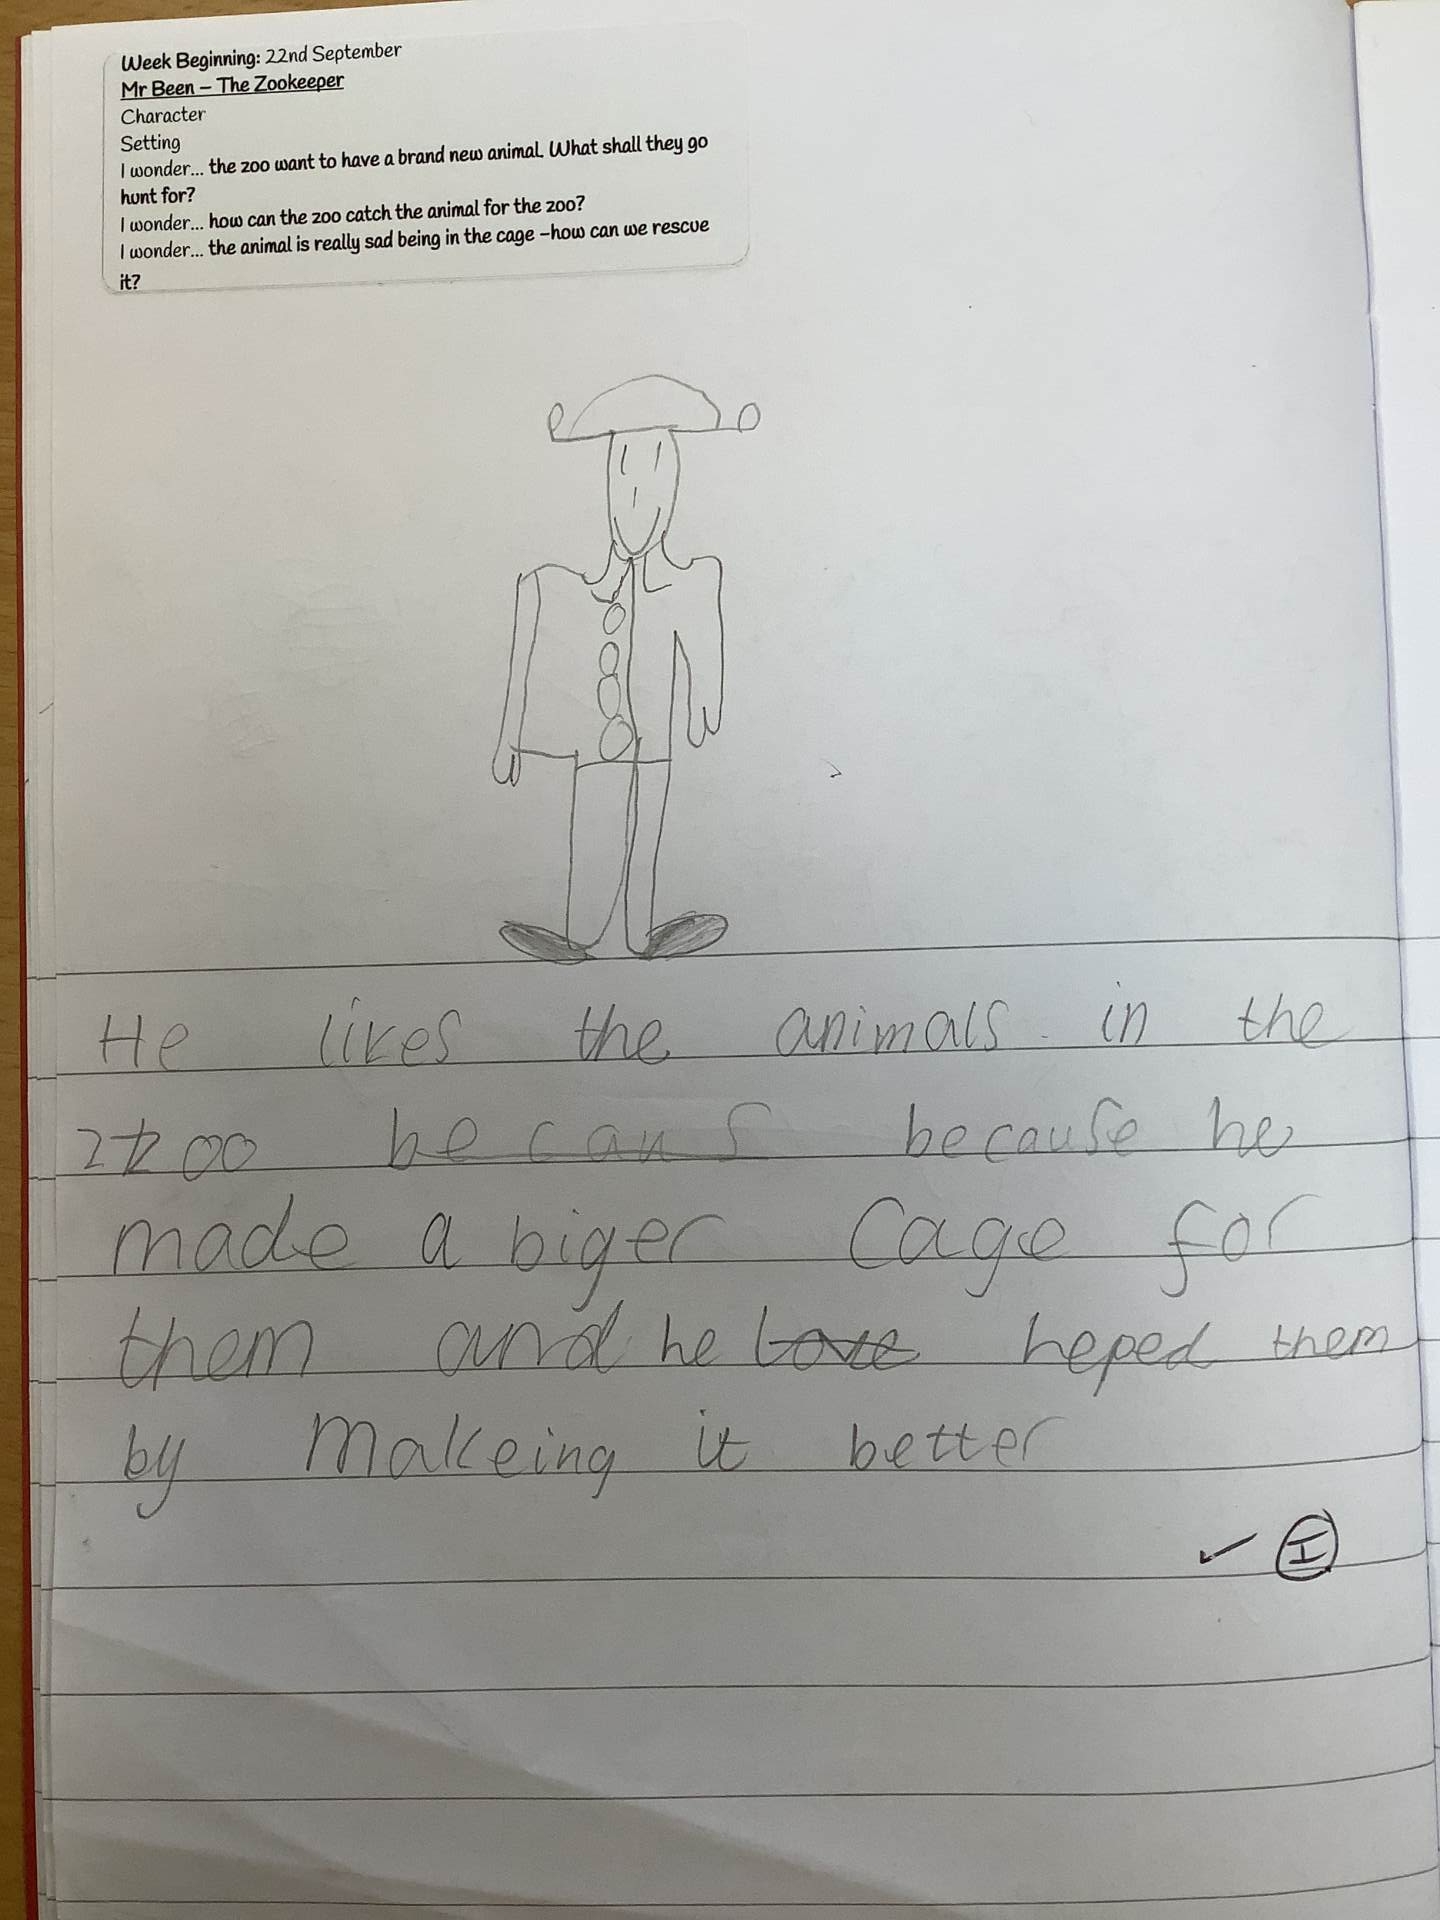 Week Beginning: 22nd September
Mr Been – The Zookeeper
Character
Setting
I wonder... the zoo want to have a brand new animal. What shall they go
hunt for?
I wonder... how can the zoo catch the animal for the zoo?
I wonder... the animal is really sad being in the cage –how can we rescue
it?
He likes the animals in the
zzoo becaus because he
made a biger cage for
them and he love heped them
by makeing it better
✓ I